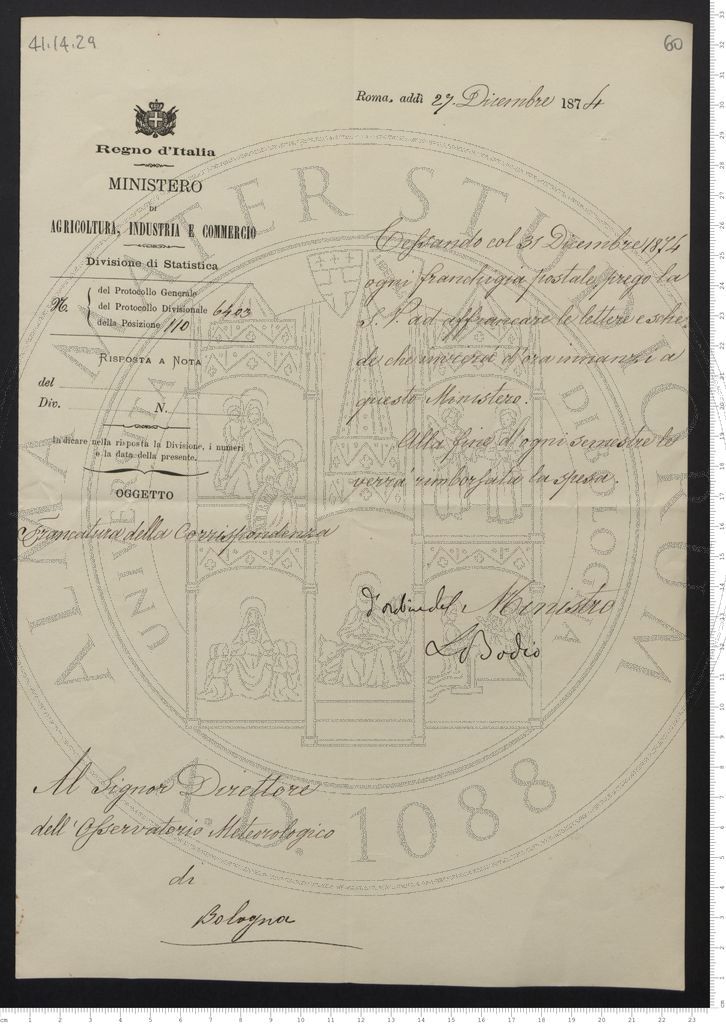 41.14.29
60
Roma, addì 27. Dicembre 1874
Regno d'Italia
MINISTERO
DI
AGRICOLTURA, INDUSTRIA E COMMERCIO
Divisione di Statistica
N.
del Protocollo Generale
del Protocollo Divisionale 6403
della Posizione 110
RISPOSTA A NOTA
del
Div. N.
Indicare nella risposta la Divisione, i numeri
e la data della presente.
OGGETTO
Francatura della Corrispondenza
Cessando col 31 Dicembre 1874
ogni franchigia postale, prego la
S. V. ad affrancare le lettere e sche-
de che invierà d'ora innanzi a
questo Ministero.
Alla fine d'ogni semestre le
verrà rimborsata la spesa.
d'ordine del Ministro
L Bodio
Al Signor Direttore
dell'Osservatorio Meteorologico
di
Bologna
ALMA MATER STUDIORUM
UNIVERSITÀ DI BOLOGNA
A.D. 1088
cm 1 2 3 4 5 6 7 8 9 10 11 12 13 14 15 16 17 18 19 20 21 22 23